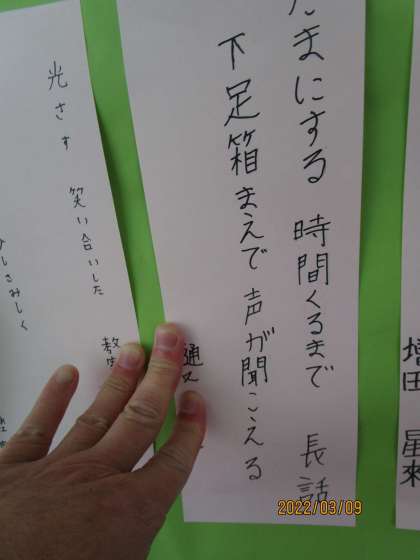 増田 星来
たまにする 時間くるまで 長話
下足箱まえで 声が聞こえる
光さす 笑い合いした
さみしく
2022/03/09